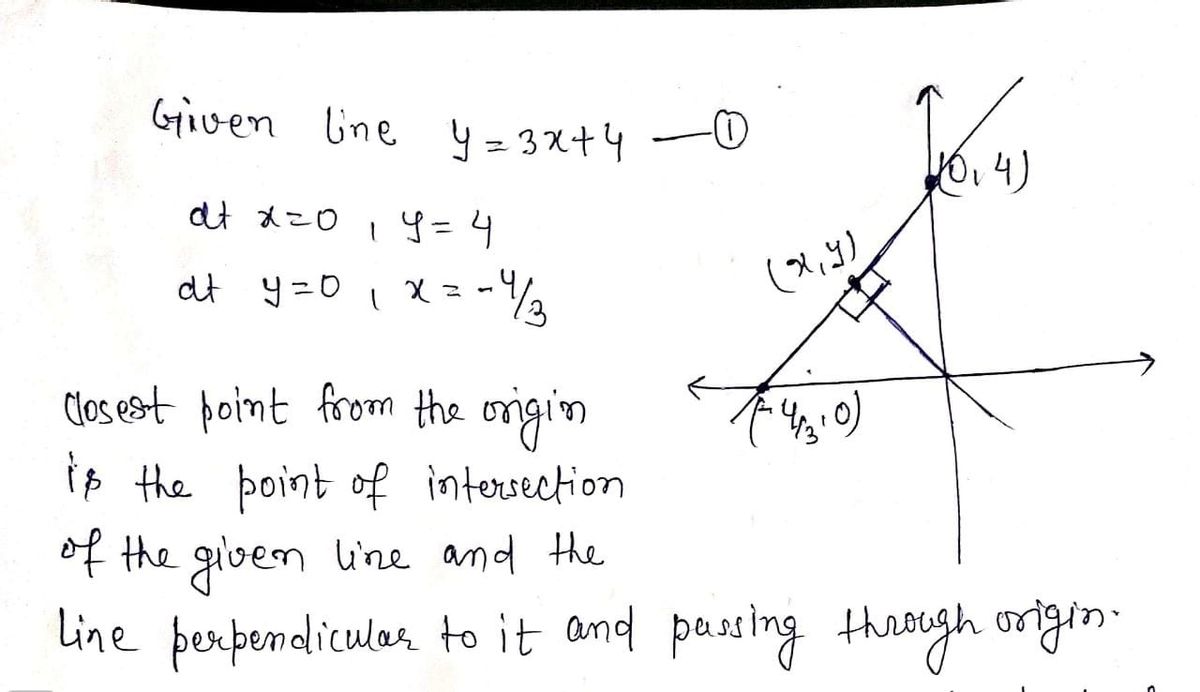 Given line y = 3x+4 — ①
at x=0 , y = 4
at y=0 , x = -4/3
(0, 4)
(x, y)
(-4/3, 0)
Closest point from the origin
is the point of intersection
of the given line and the
line perpendicular to it and passing through origin.